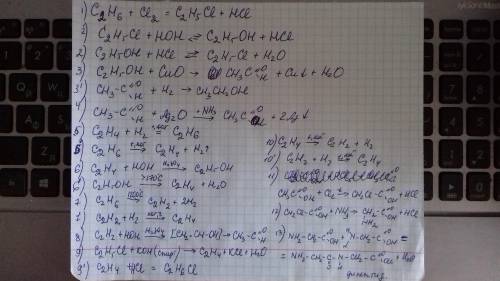 1) C2H6 + Cl2 = C2H5Cl + HCl
2) C2H5Cl + HOH ⇌ C2H5OH + HCl
2) C2H5OH + HCl ⇌ C2H5Cl + H2O
3) C2H5OH + CuO → CH3C=O-H + Cu↓ + H2O
3') CH3-C=O-H + H2 → CH3CH2OH
4) CH3-C=O-H + Ag2O +NH3→ CH3C=O + 2Ag↓
5 C2H4 + H2 = C2H6
5 C2H6 → C2H4 + H2↑
6) C2H4 + HOH H2SO4→ C2H5-OH
6' C2H5OH → C2H4 + H2O
7) C2H6 → C2H2 + 2H2
7 C2H2 + H2 → C2H4
8 C2H2 + HOH → [CH2=CH-OH] → CH3-C=O-H
9) C2H5Cl + KOH (спирт) → C2H4 + KCl + H2O
9' C2H4 + HCl = C2H5Cl
10) C2H4 → C2H2 + H2
10') C2H2 + H2 → C2H4
11)
CH3C=O-OH + Cl2 → CH2Cl-C=O-OH + HCl
12) CH2Cl-C=O-OH + NH3 → CH2-C=O-OH + HCl
NH2
13) NH2-CH2-C=O-OH + H-N-CH2-C=O-OH =
= NH2-CH2-C-N-CH2-C=O-OH + H2O
O H
дипептид